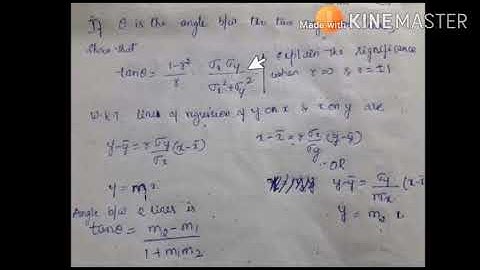 If θ is the angle b/w the two
Made with KINEMASTER
show that
tanθ = 1-r²/r σx σy/σx²+σy² explain the significance
when r=0 & r=±1
W.K.T lines of regression of y on x & x on y are
y-ȳ = r σy/σx (x-x̄)
x-x̄ = r σx/σy (y-ȳ)
OR
y-ȳ = σy/rσx (x-x̄
y = m₁x
y = m₂ x
Angle b/w 2 lines is
tanθ = m₂-m₁/1+m₁m₂